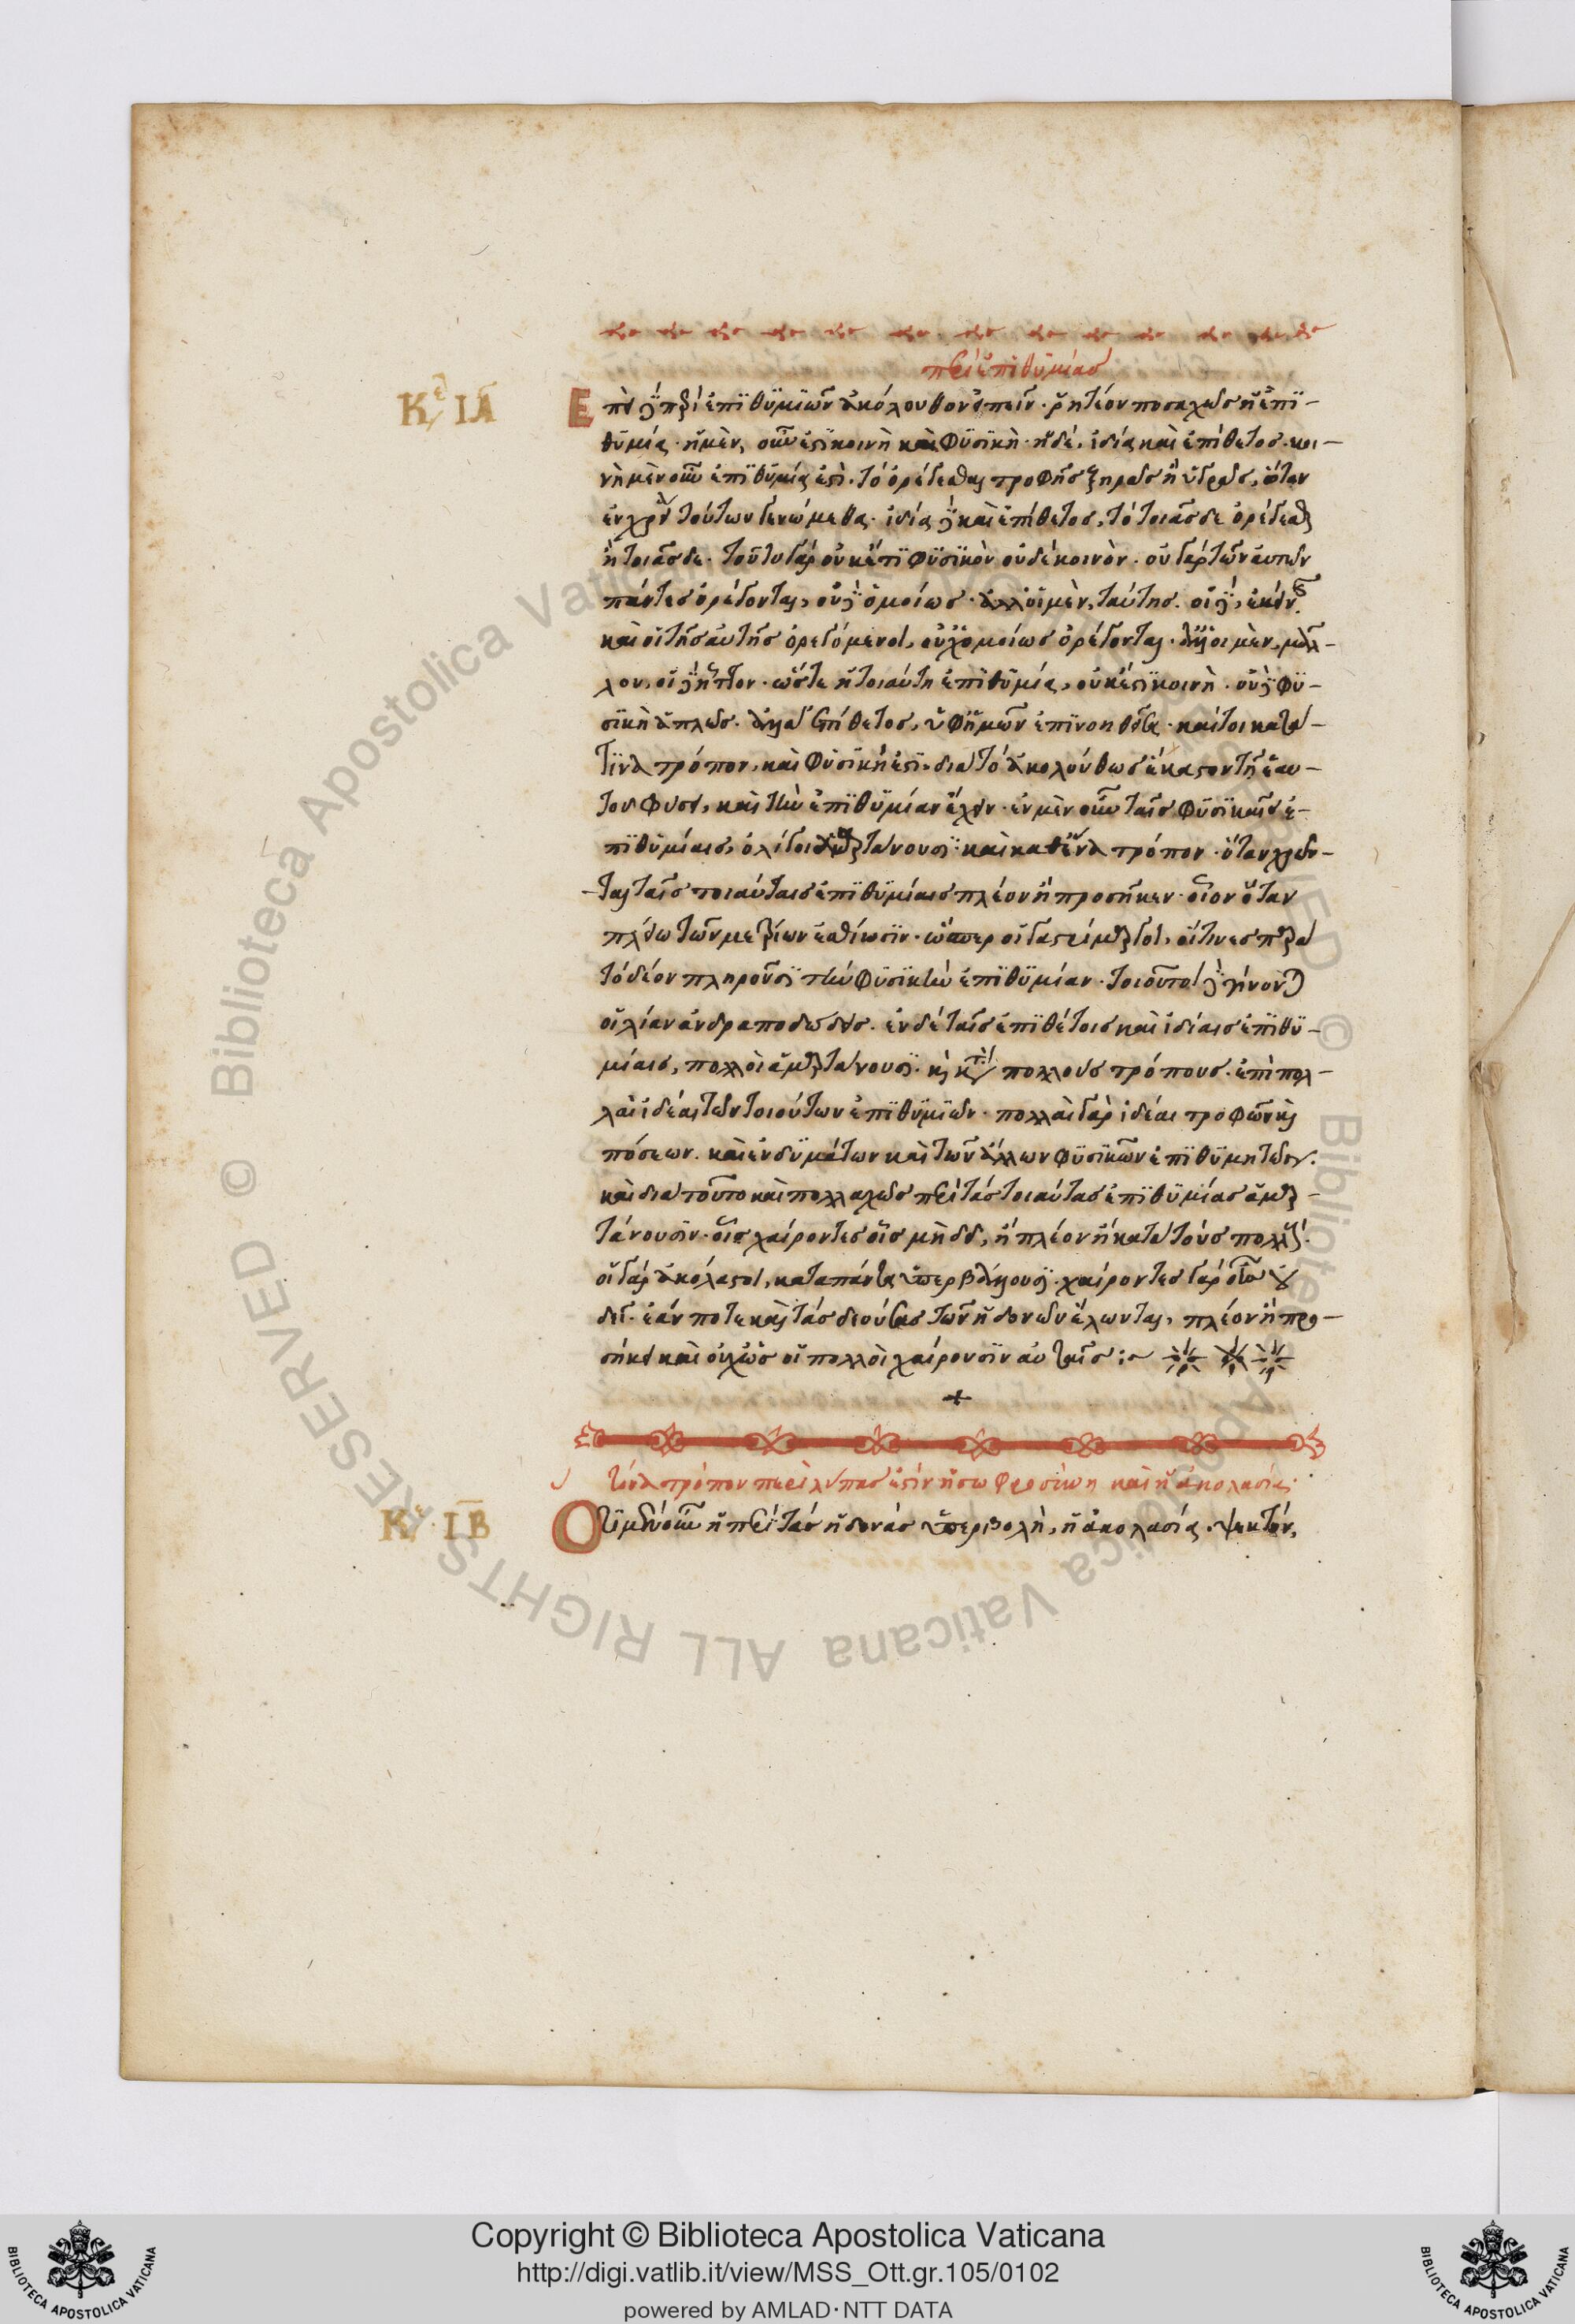 περὶ ἐπιθυμίας
Κε ΙΑ
Ἐπεὶ δὲ περὶ ἐπιθυμιῶν ἀκόλουθον εἰπεῖν· ῥητέον ποσαχῶς ἡ ἐπι-
θυμία· ἡ μὲν, οὖν ἐστὶ κοινὴ καὶ φυσικὴ· ἡ δὲ, ἰδία καὶ ἐπίθετος· κοι-
νὴ μὲν οὖν ἐπιθυμία ἐστὶ· τὸ ὀρέγεσθαι τροφῆς ξηρᾶς ἢ ὑγρᾶς, ὅταν
ἐν χρείᾳ τούτων γενώμεθα· ἰδία δὲ καὶ ἐπίθετος, τὸ τοιᾶσδε ὀρέγεσθαι
ἢ τοιᾶσδε· τοῦτο γὰρ οὐκέτι φυσικὸν οὐδὲ κοινὸν· οὐ γὰρ τῶν αὐτῶν
πάντες ὀρέγονται, οὐδὲ ὁμοίως· ἀλλ' οἱ μὲν, ταύτης· οἱ δὲ, ἐκείνης
καὶ οἱ τῆς αὐτῆς ὀρεγόμενοι, οὐχ ὁμοίως ὀρέγονται· ἀλλ' οἱ μὲν, μᾶλ-
λον, οἱ δὲ ἧττον· ὥστε ἡ τοιαύτη ἐπιθυμία, οὐκ ἔστι κοινὴ· οὐδὲ φυ-
σικὴ ἁπλῶς· ἀλλὰ ἐπίθετος, ὑφ' ἡμῶν ἐπινοηθεῖσα· καίτοι κατά
τινα τρόπον, καὶ φυσική ἐστι, διὰ τὸ ἀκολούθως ἕκαστον τῇ ἑαυ-
τοῦ φύσει, καὶ τὴν ἐπιθυμίαν ἔχειν· ἐν μὲν οὖν ταῖς φυσικαῖς ἐ-
πιθυμίαις, ὀλίγοι ἁμαρτάνουσι· καὶ καθ' ἕνα τρόπον· ὅταν χρῶν-
ται ταῖς τοιαύταις ἐπιθυμίαις πλέον ἢ προσῆκεν· οἷον ὅταν
πλείω τῶν μετρίων ἐσθίωσιν· ὥσπερ οἱ γαστρίμαργοι, οἵτινες παρὰ
τὸ δέον πληροῦσι τὴν φυσικὴν ἐπιθυμίαν· τοιοῦτοι δὲ γίνονται
οἱ λίαν ἀνδραποδώδεις· ἐν δὲ ταῖς ἐπιθέτοις καὶ ἰδίαις ἐπιθυ-
μίαις, πολλοὶ ἁμαρτάνουσι· καὶ κατὰ πολλοὺς τρόπους· ἐπεὶ πολ-
λαὶ ἰδέαι τῶν τοιούτων ἐπιθυμιῶν· πολλαὶ γὰρ ἰδέαι τροφῶν καὶ
πόσεων· καὶ ἐνδυμάτων καὶ τῶν ἄλλων φυσικῶν ἐπιθυμητῶν·
καὶ διὰ τοῦτο καὶ πολλαχῶς περὶ τὰς τοιαύτας ἐπιθυμίας ἁμαρ-
τάνουσιν· οἷς χαίροντες οἷς μὴ δεῖ, ἢ πλέον ἢ κατὰ τοὺς πολλούς·
οἱ γὰρ ἀκόλαστοι, κατὰ πάντα ὑπερβάλλουσι· χαίροντες γὰρ οἷς οὐ
δεῖ· ἐάν ποτε καὶ τὰς δεούσας τῶν ἡδονῶν ἕλωνται, πλέον ἢ προ-
σήκει καὶ οὐχ ὡς οἱ πολλοὶ χαίρουσιν αὐταῖς :~
τίνα τρόπον περὶ λύπας ἐστὶν ἡ σωφροσύνη καὶ ἡ ἀκολασία·
Κε ΙΒ
Ὅτι μὲν οὖν ἡ περὶ τὰς ἡδονὰς ὑπερβολὴ, ἡ ἀκολασία· ψεκτόν,
Copyright © Biblioteca Apostolica Vaticana
http://digi.vatlib.it/view/MSS_Ott.gr.105/0102
powered by AMLAD·NTT DATA
BIBLIOTECA APOSTOLICA VATICANA
BIBLIOTECA APOSTOLICA VATICANA
© Biblioteca Apostolica Vaticana ALL RIGHTS RESERVED